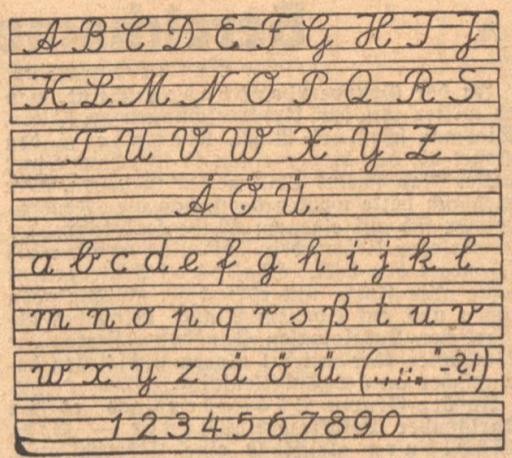 A B C D E F G H I J
K L M N O P Q R S
T U V W X Y Z
Ä Ö Ü
a b c d e f g h i j k l
m n o p q r s ß t u v
w x y z ä ö ü (.,;:„"-?!)
1 2 3 4 5 6 7 8 9 0